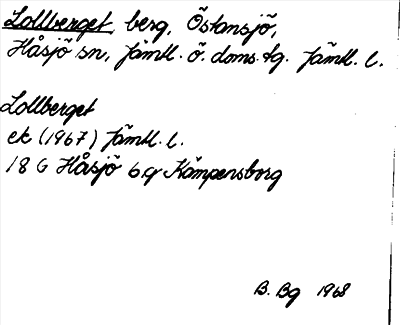 Lollberget, berg, Östansjö,
Håsjö sn, Jämtl. ö. doms.tg. Jämtl. l.
Lollberget
ek (1967) Jämtl. l.
18 G Håsjö 6 g Kämpensborg
B. Bg 1968